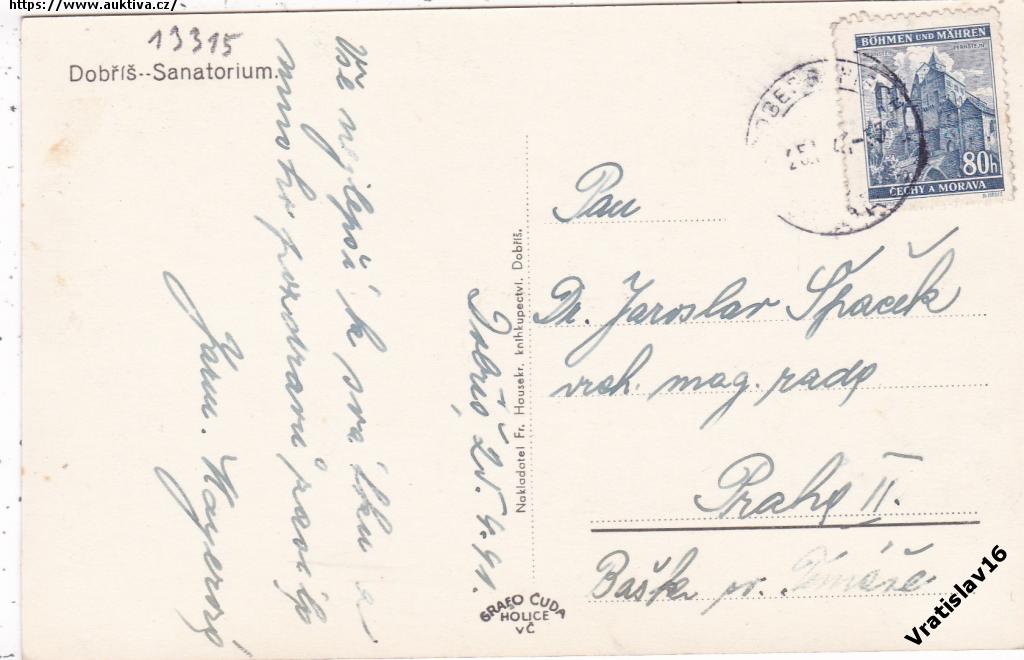 https://www.auktiva.cz/
13315
Dobříš--Sanatorium.
Vše nejlepší k svátku a
mnoho pozdravů
Jarm. Mayerový
Dobříš 25. 4. 41.
Nakladatel Fr. Hausekr. knihkupectví. Dobříš.
GRAFO ČUDA
HOLICE
VČ
BÖHMEN UND MÄHREN
PERNSTEJN
80h
ČECHY A MORAVA
Pan
Dr. Jaroslav Špaček
vrch. mag. rada
Praha II.
Vratislav16